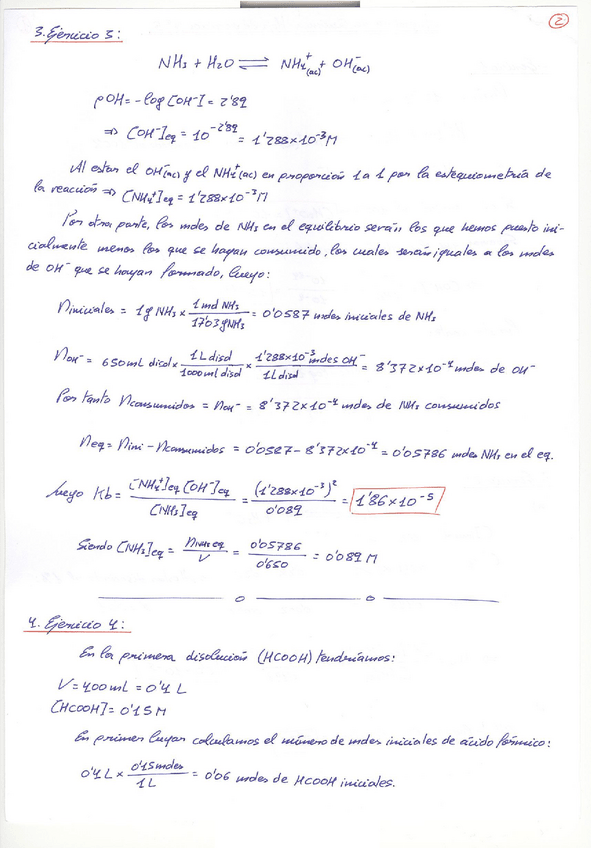 2
3. Ejercicio 3:
NH₃ + H₂O ⇌ NH₄⁺(ac) + OH⁻(ac)
pOH = -log [OH⁻] = 2'89
⇒ [OH⁻]eq = 10^-2'89 = 1'288×10⁻³ M
Al estar el OH⁻(ac) y el NH₄⁺(ac) en proporción 1 a 1 por la estequiometría de
la reacción ⇒ [NH₄⁺]eq = 1'288×10⁻³ M
Por otra parte, los moles de NH₃ en el equilibrio serán los que hemos puesto ini-
cialmente menos los que se hayan consumido, los cuales serán iguales a los moles
de OH⁻ que se hayan formado, luego:
niniciales = 1g NH₃ × 1 mol NH₃ / 17'03 g NH₃ = 0'0587 moles iniciales de NH₃
nOH⁻ = 650 mL disol × 1 L disol / 1000 mL disol × 1'288×10⁻³ moles OH⁻ / 1 L disol = 8'372×10⁻⁴ moles de OH⁻
Por tanto nconsumidos = nOH⁻ = 8'372×10⁻⁴ moles de NH₃ consumidos
neq = nini - nconsumidos = 0'0587 - 8'372×10⁻⁴ = 0'05786 moles NH₃ en el eq.
luego Kb = [NH₄⁺]eq [OH⁻]eq / [NH₃]eq = (1'288×10⁻³)² / 0'089 = 1'86×10⁻⁵
Siendo [NH₃]eq = nNH₃ eq / V = 0'05786 / 0'650 = 0'089 M
4. Ejercicio 4:
En la primera disolución (HCOOH) tendríamos:
V = 400 mL = 0'4 L
[HCOOH] = 0'15 M
En primer lugar calculamos el número de moles iniciales de ácido fórmico:
0'4 L × 0'15 moles / 1 L = 0'06 moles de HCOOH iniciales.